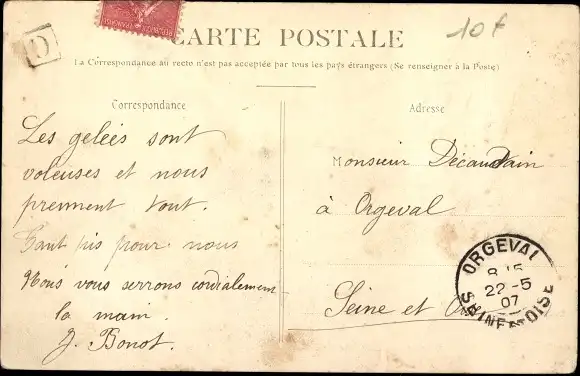 D
RÉPUBLIQUE FRANÇAISE
10 f
CARTE POSTALE
La Correspondance au recto n'est pas acceptée par tous les pays étrangers (Se renseigner à la Poste)
Correspondance
Les gelées sont
voleuses et nous
prennent tout.
Tant pis pour nous
Nous vous serrons cordialement
la main.
J. Bonot.
Adresse
Monsieur Décaudain
à Orgeval
Seine et
ORGEVAL
8 15
22-5
07
SEINE ET OISE